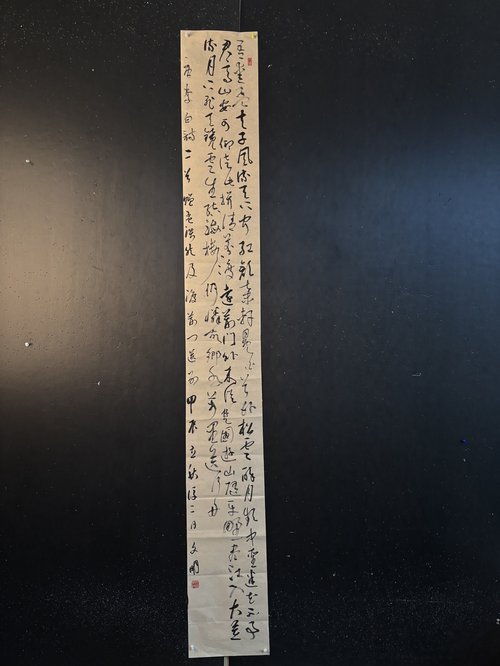 吾愛孟夫子風流天下聞紅顏棄軒冕白首臥松雲醉月頻中聖迷花不事
君高山安可仰徒此揖清芬渡遠荊門外來從楚國遊山隨平野盡江入大荒
流月下飛天鏡雲生結海樓仍憐故鄉水萬里送行舟
李白詩二首贈孟浩然及渡荊門送別甲辰立秋後二日文